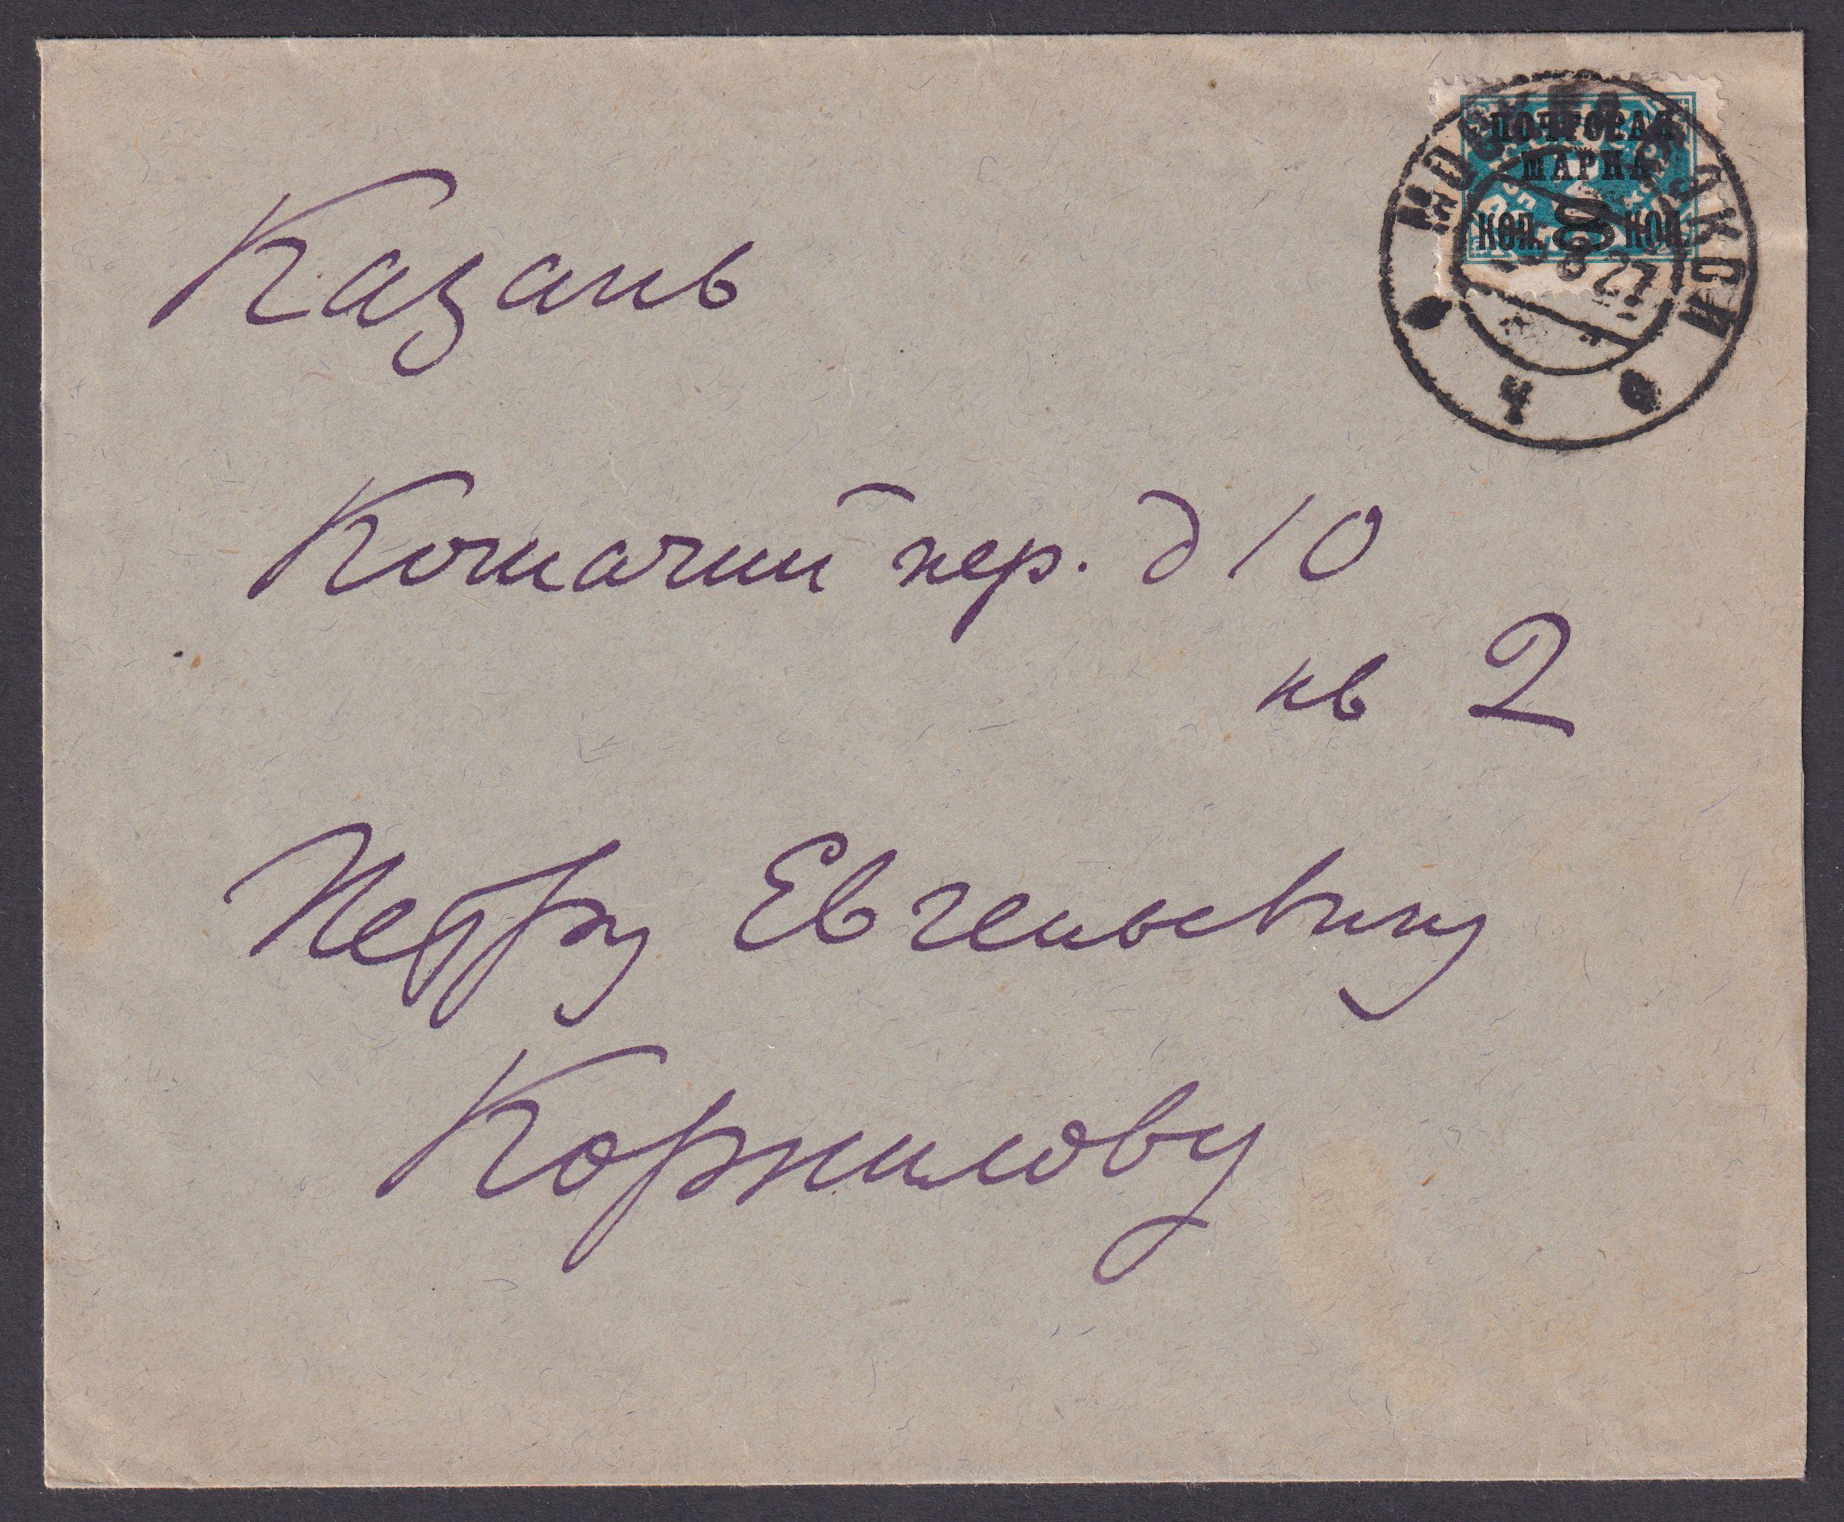 ПОЧТОВАЯ
МАРКА
КОП. 8 КОП.
МОСКВА
8 27
Ч
Казань
Кошачий пер. д 10
кв 2
Петру Евгеньевичу
Корнилову